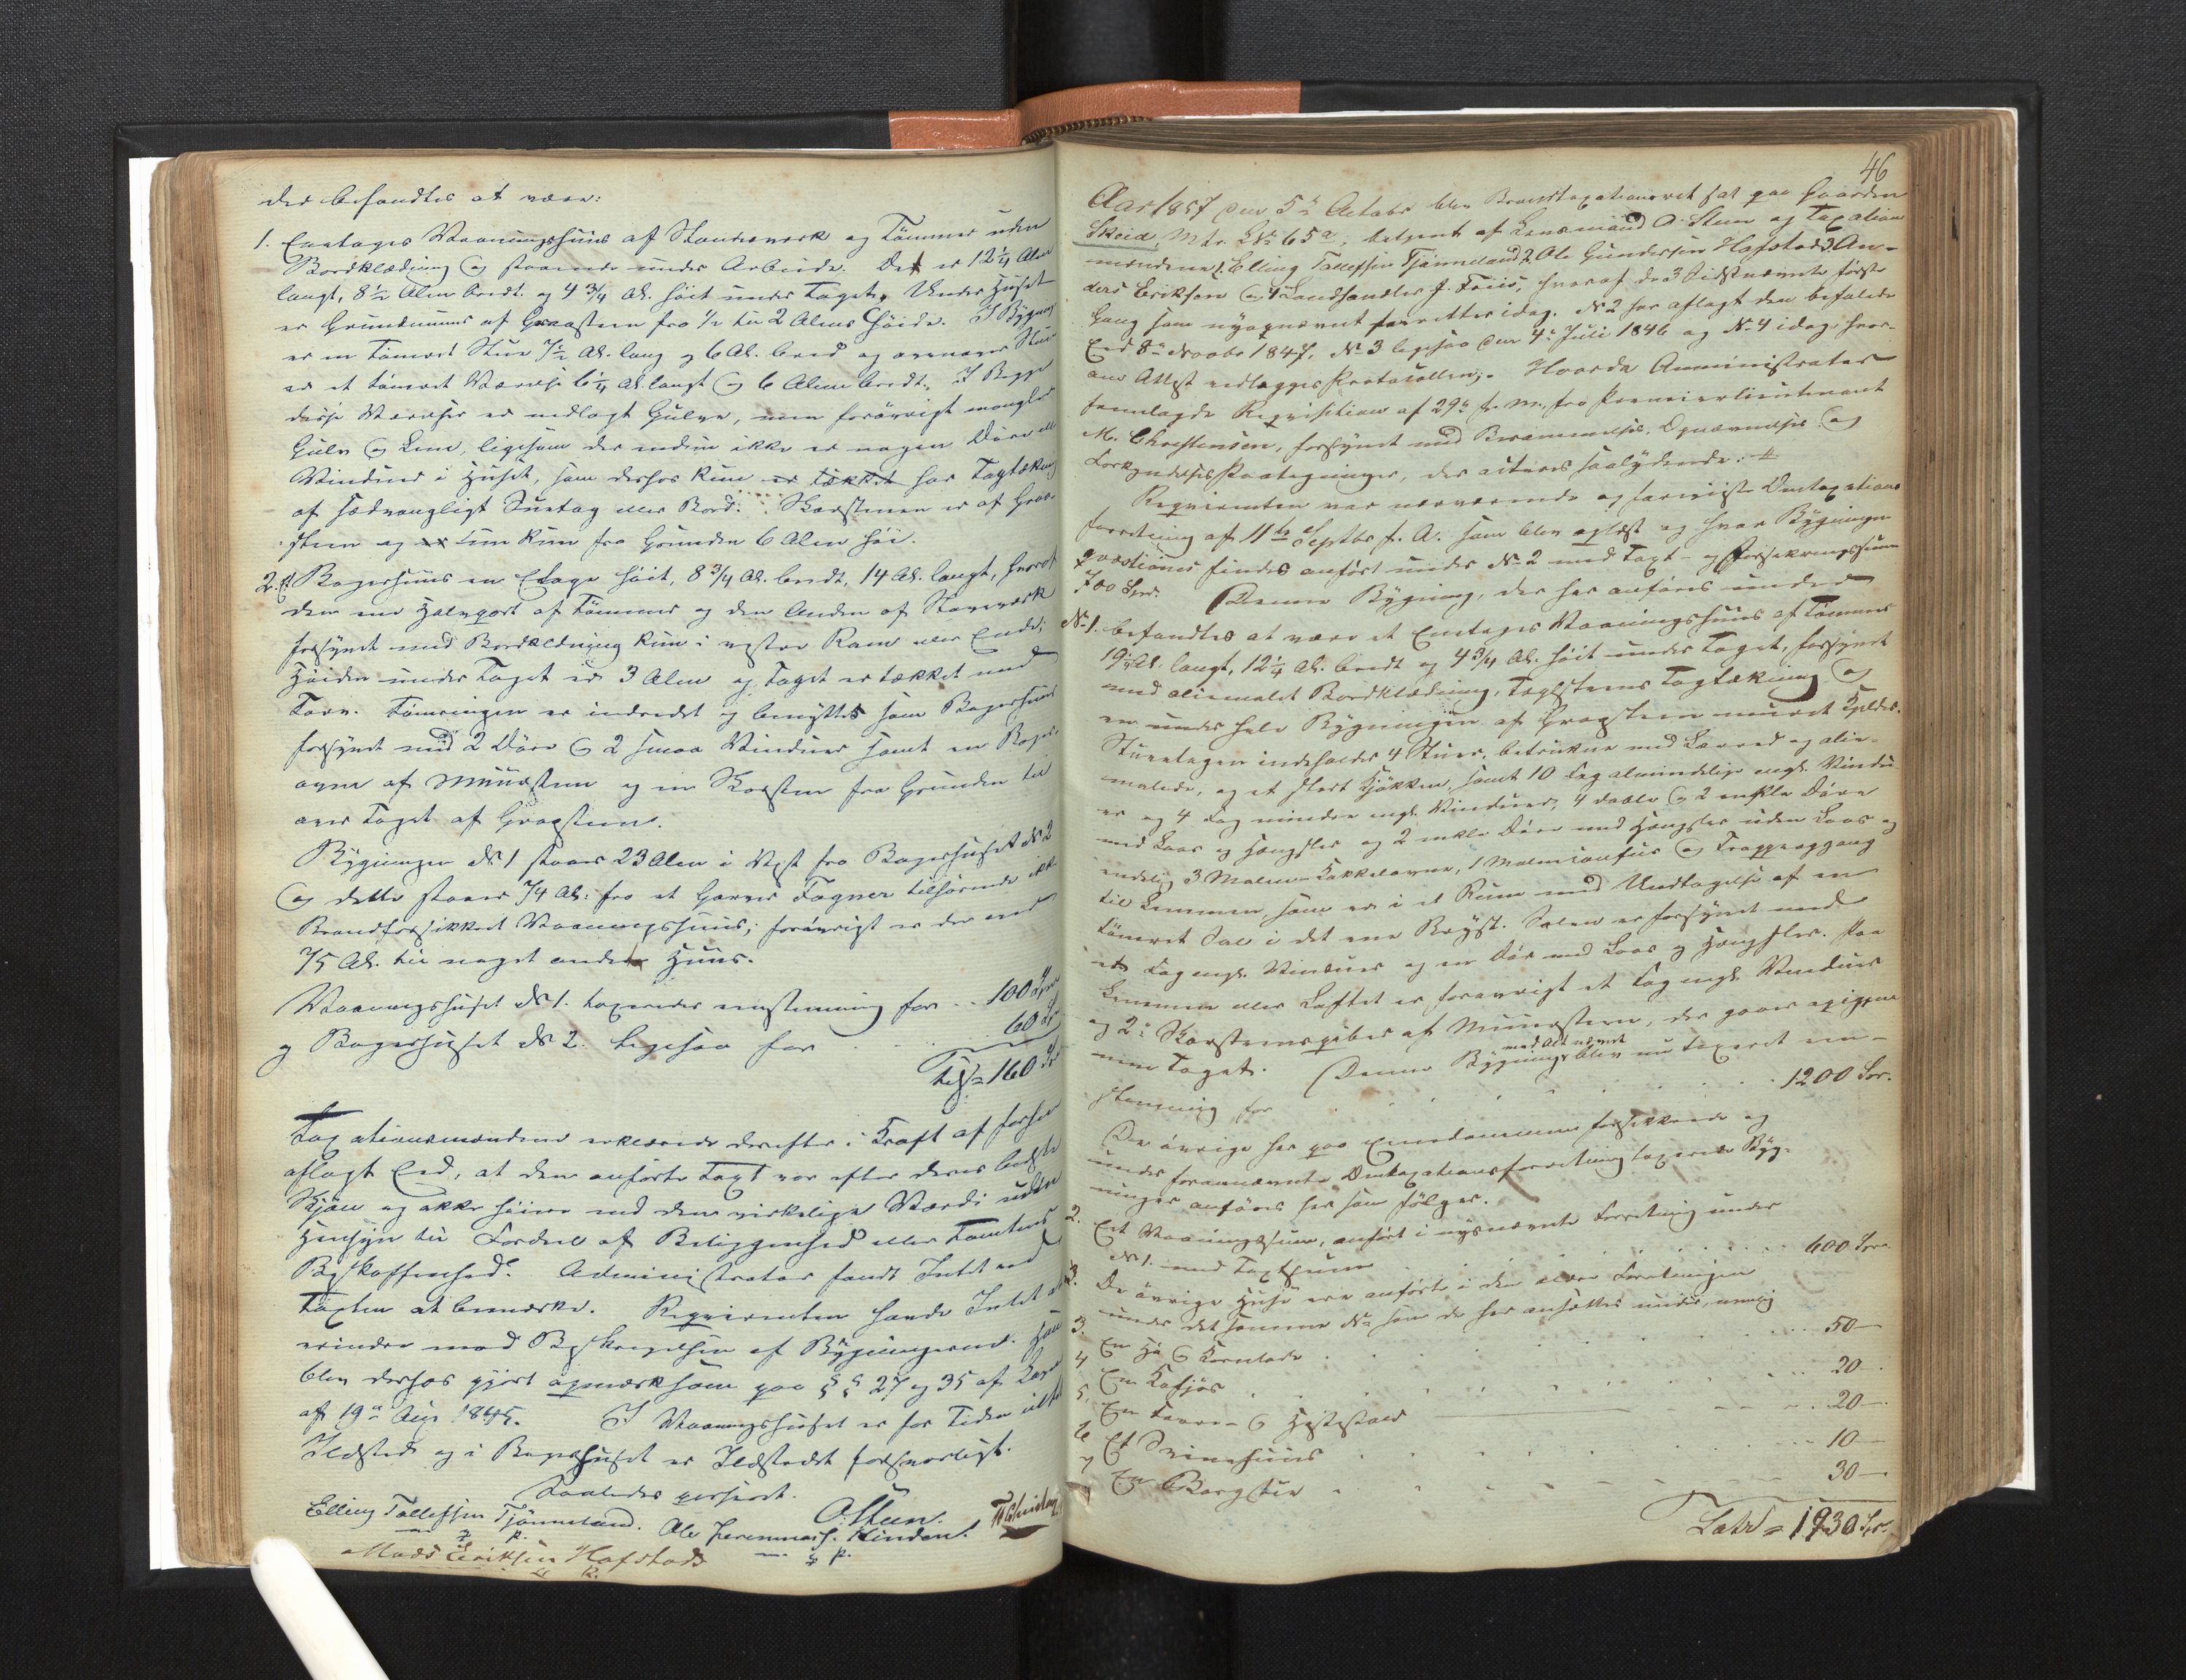 der befandtes at være:
1. Eenetages Vaaningshuus af Standværk og Tømmer uden
Bordklædning og staaende under Arbeide. Det er 12 1/4 Alen
langt, 8 1/2 Alen bredt og 4 3/4 Al. høit under Taget. Under Huset
er Grundmuur af Graasteen fra 1/2 til 2 Alens Høide. I Bygning
er en tømret Stue 7 1/2 Al. lang og 6 Al. bred og ovenover Stuen
er et tømret Værelse 6 1/4 Al. langt og 6 Alen bredt. I Begge
disse Værelser er nedlagt Gulve, men forøvrigt mangler
Gulv og Lem, ligesom der endnu ikke er nogen Døre ell
Vinduer i Huset, som derhos kun er tækket har Tagtækning
af sædvangligt Suetag eller Bord. Skorstenen er af Graa-
steen og kun fra Grunden 6 Alen høi.
2. Et Bagerhuus en Etage høit, 8 3/4 Al. bredt, 14 Al. langt, hvoraf
den ene Halvpart af Tømmer og den Anden af Stavværk
forsynet med Bordklædning kun i vestre Ram eller Ende;
Høiden under Taget er 3 Alen og Taget er tækket med
Torv. Tømringen er indredet og benyttes som Bagerhuus
forsynet med 2 Døre og 2 smaa Vinduer samt en Bager-
ovne af Muursteen og en Skorsten fra Grunden til
over Taget af Graasteen.
Bygningen No 1 staaer 23 Alen i Vest fra Bagerhuset No 2
og dette staaer 74 Al: fra et Garver Fagner tilhørende ikke
Brandforsikkret Vaaningshuus; forøvrigt er der med
75 Al. til noget andet Huus.
Vaaningshuset No 1. taxeredes eenstemmig for .. 100 Spd
og Bagerhuset No 2. ligesaa for . . . 60
tils = 160
Taxationsmændene erklærede derefter i Kraft af forhen
aflagt Eed, at den anførte Taxt var efter deres bedste
Skjøn og ikke høiere end den virkelige Værdi uden
Hensyn til Fordeel af Beliggenhed eller Tomtens
Beskaffenhed. Administrator fandt Intet ved
Taxten at bemærke. Reqvirenten havde Intet at
erindre mod Beskrivelsen af Bygningerne. Han
blev derhos gjort opmærksom paa §§ 27 og 35 af Lov
af 19de Aug 1845. I Vaaningshuset er for Tiden intet
Ildsted og i Bagerhuset er Ildstedet forsvarligt.
Saaledes passeret.
Elling Tollefsen Tjønneland. O. Steen.
m. f. P. Ole Hindenes.
Mads Eriksen Hafstad
46
Aar 1857 den 5te Octobr blev Brandtaxationsret sat paa Gaarden
Skeid, Mtr. No 65a, betjent af Lensmand O. Steen og Taxations
mændene 1. Elling Tollefsen Tjønneland 2. Ole Gundersen Hafstad 3. An-
ders Eriksen og 4 Landhandler J. Friis, hvoraf de 3 Sidstnævnte første
Gang som nyopnævnt forretter idag. No 2 har aflagt den befalede
Eed 8de Novbr 1847, No 3 ligesaa den 4de Juli 1846 og No 4 idag hvor-
om Attest vedlægges Protocollen. Hvorda Administrator
fremlagde Reqvisition af 29de f. M. fra Premierlieutenant
M. Christensen, forsynet med Berammelse, Opnævnelses og
Forkyndelses Paategninger, der aiteres saalydende: #
Reqvirenten var nærværende og foreviste Omtaxations
forretning af 11te Septbr f. A. som blev oplæst og hvor Bygningen
qvæstionis findes anført under No 2 med Taxt- og Forsikringssum
700 Spd. Denne Bygning, der her anføres under
No 1. befandtes at være et Eenetages Vaaningshuus af Tømmer
19 1/4 Al. langt, 12 1/4 Al. bredt og 4 3/4 Al. høit under Taget, forsynet
med oliemalet Bordklædning, Taglsteens Tagtækning og
en under hele Bygningen af Graasteen muret Kjelder.
Stuenetagen indeholder 4 Stuer, betrukne med Lærred og olie-
malede, og et stort Kjøkken, samt 10 Fag almindelige engl. Vindu-
er og 4 Fag mindre engl. Vinduer, 4 doble og 2 enkle Døre
med Laas og Hængsler og 2 enkle Døre med Hængsler uden Laas og
endelig 3 Malm-Kakkelovne, 1 Malmcomfur og Trappeopgang
til Lemmen, som er i et Rum med Undtagelse af en
tømret Sal i det ene Bryst. Salen er forsynet med
et Fag engl. Vinduer og en Dør med Laas og Hængsler. Paa
Lemmen eller Loftet er forøvrigt et Fag engl. Vinduer
og 2de Skorsteenspiber af Muursteen, der gaaer op igjen-
nem Taget. Denne Bygning med Alt nævnt blev nu taxeret een-
stemmig for . . . . 1200 Spd.
De øvrige her paa Eiendommen forsikkrede og
under forannævnte Omtaxationsforretning taxerede Byg-
ninger anføres her som følger.
2. Eet Vaaningshuus, anført i nysnævnte Forretning under
No 1. med Taxtsum . . . . 600 Spd.
De øvrige Huse ere anførte i den ældre Forretningen
under det samme No som de her ansættes under, nemlig
3. En Hø og Kornlade . . . . 50 —
4 En Kofjøs . . . . 20 —
5. En Faare- og Hestestald . . . . 20 —
6 Et Svinehuus . . . . 10 —
7 En Borgstue . . . . 30 —
Latus = 1930 Spd.